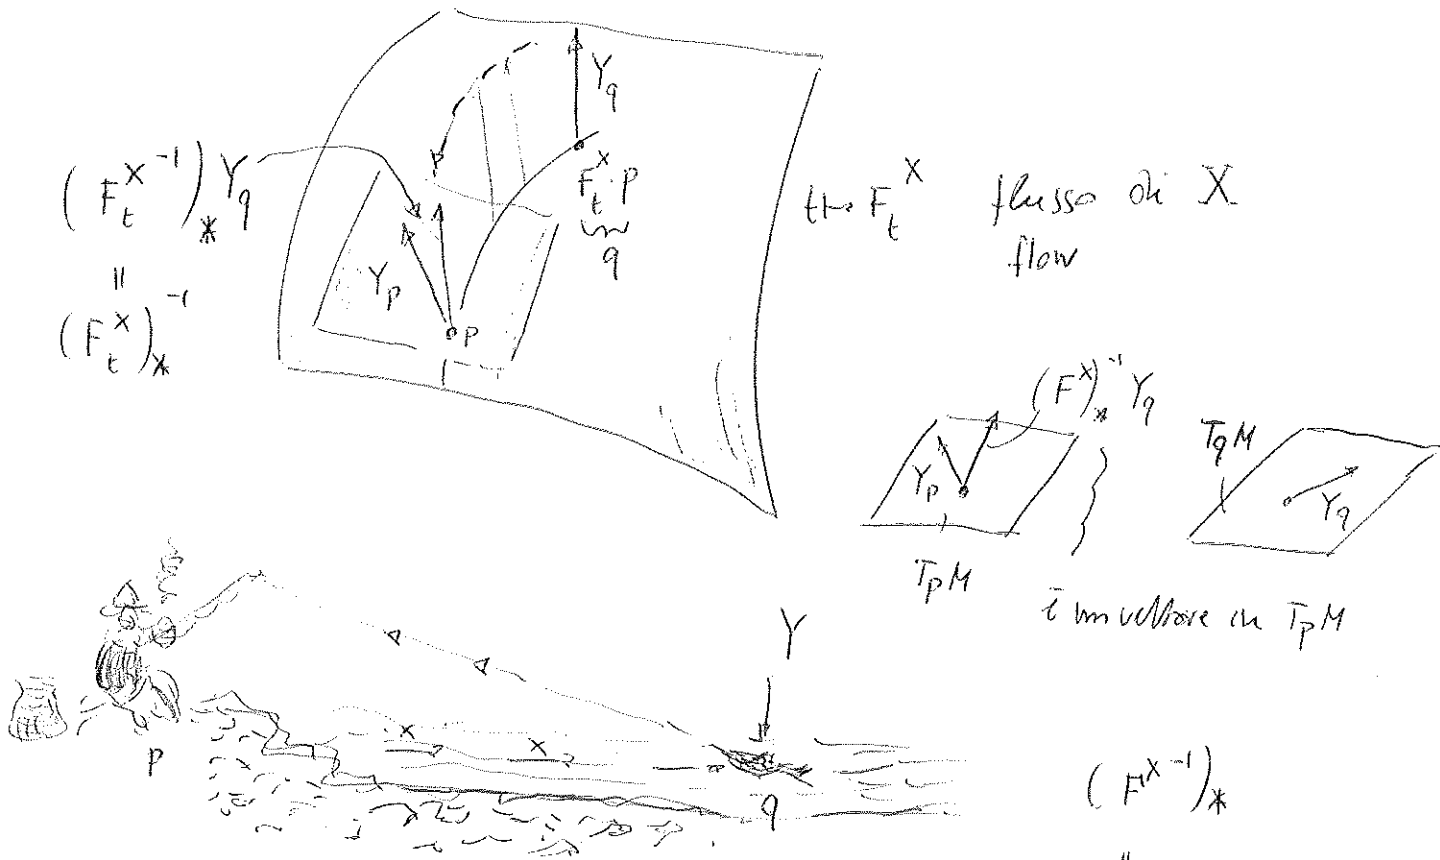 Y_q
(F_t^{X^{-1}})_* Y_q
||
(F_t^X)_*^{-1}
P
F_t^X · p
q
Y_p
p
t ↦ F_t^X flusso di X
flow
(F^X)_*^{-1} Y_q
Y_p
T_pM
T_qM
Y_q
è un vettore in T_pM
Y
X
X
P
q
(F^{X^{-1}})_*
||